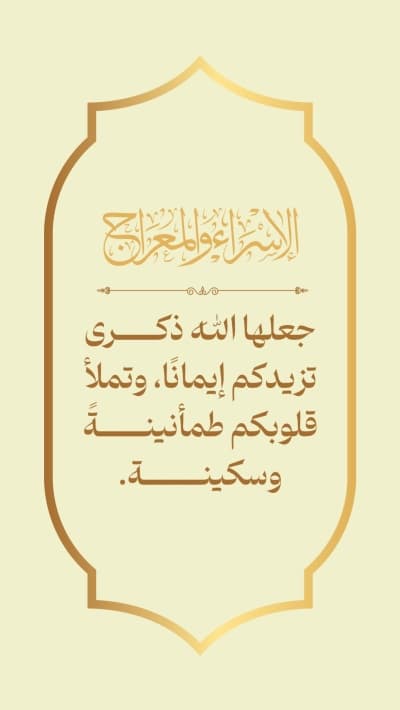 الإسراء والمعراج
جعلها الله ذكـــرى
تزيدكم إيمانًا، وتملأ
قلوبكم طمأنينـــةً
وسكينـــــة.